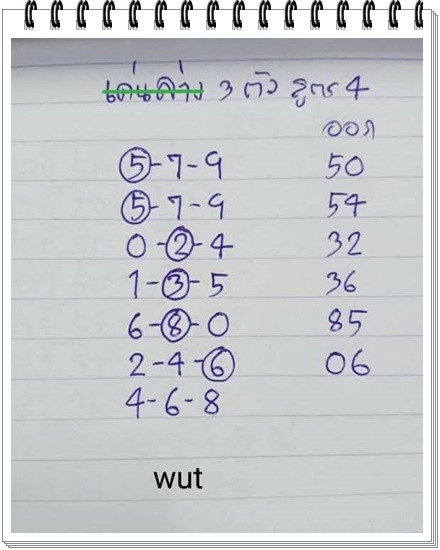 เด่นล่าง 3 ตัว สูตร 4
ออก
5-7-9 50
5-7-9 54
0-2-4 32
1-3-5 36
6-8-0 85
2-4-6 06
4-6-8
wut